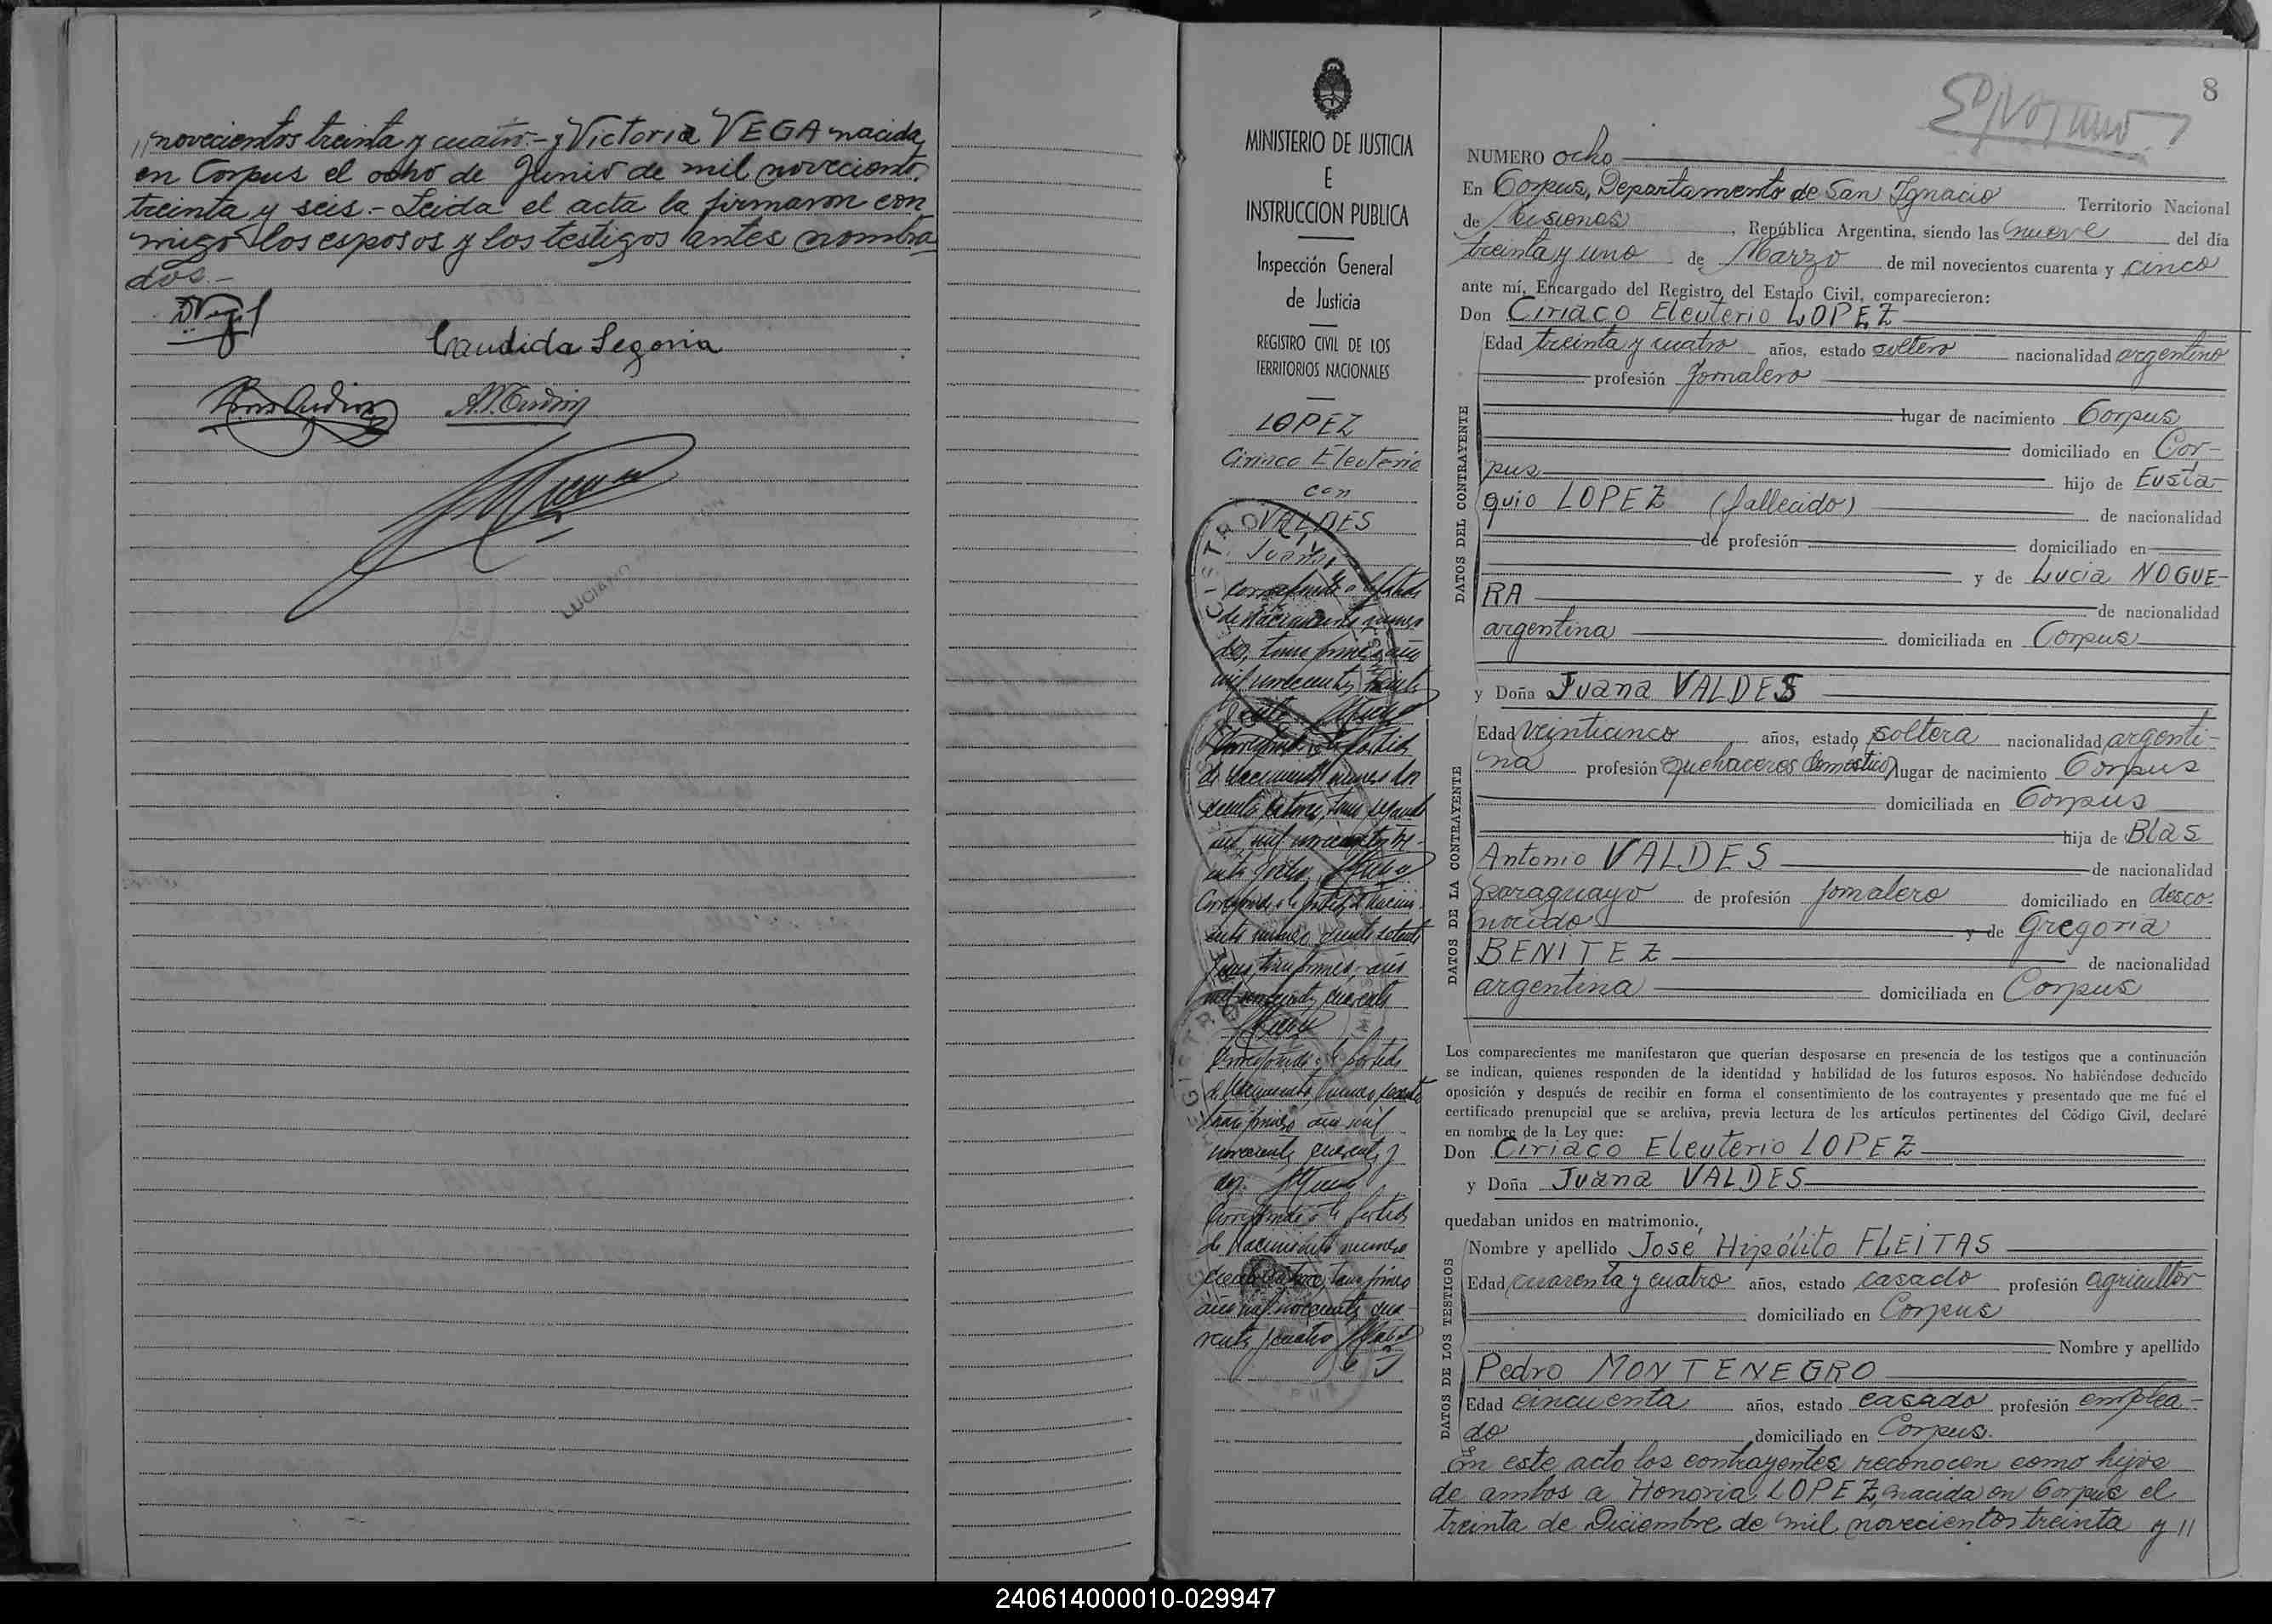 // novecientos treinta y cuatro.- y Victoria VEGA nacida
en Corpus el ocho de Junio de mil novecientos
treinta y seis.- Leida el acta la firmaron con
migo los esposos y los testigos antes nombra
dos.-
Candida Segovia
LUCIANO
8
MINISTERIO DE JUSTICIA
E
INSTRUCCION PUBLICA
Inspección General
de Justicia
REGISTRO CIVIL DE LOS
TERRITORIOS NACIONALES
LOPEZ
Ciriaco Eleuterio
con
VALDES
Juana
Corresponde a la partida
de Nacimiento numero
dos, tomo primero, año
mil novecientos treinta
Corresponde a la partida
de Nacimiento numero dos
cientos catorce, tomo segundo
año mil novecientos tre-
inta y ocho
Corresponde a la partida de Nacimi-
ento numero
tomo primero, año
mil novecientos cuarenta
Corresponde a la partida
de Nacimiento, numero sesenta
tomo primero año mil
novecientos cuarenta y
dos.
Corresponde a la partida
de Nacimiento numero
tomo primero
año mil novecientos cua-
renta y cuatro
NUMERO ocho
En Corpus, Departamento de San Ignacio Territorio Nacional
de Misiones, República Argentina, siendo las nueve del día
treinta y uno de Marzo de mil novecientos cuarenta y cinco
ante mí, Encargado del Registro del Estado Civil, comparecieron:
Don Ciriaco Eleuterio LOPEZ
DATOS DEL CONTRAYENTE
Edad treinta y cuatro años, estado soltero nacionalidad argentino
profesión Jornalero
lugar de nacimiento Corpus
domiciliado en Cor-
pus hijo de Eusta-
quio LOPEZ (fallecido) de nacionalidad
de profesión domiciliado en
y de Lucia NOGUE-
RA de nacionalidad
argentina domiciliada en Corpus
y Doña Juana VALDES
DATOS DE LA CONTRAYENTE
Edad veinticinco años, estado soltera nacionalidad argenti-
na profesión quehaceres domésticos lugar de nacimiento Corpus
domiciliada en Corpus
hija de Blas
Antonio VALDES de nacionalidad
paraguayo de profesión jornalero domiciliado en desco-
nocido y de Gregoria
BENITEZ de nacionalidad
argentina domiciliada en Corpus
Los comparecientes me manifestaron que querían desposarse en presencia de los testigos que a continuación
se indican, quienes responden de la identidad y habilidad de los futuros esposos. No habiéndose deducido
oposición y después de recibir en forma el consentimiento de los contrayentes y presentado que me fué el
certificado prenupcial que se archiva, previa lectura de los artículos pertinentes del Código Civil, declaré
en nombre de la Ley que:
Don Ciriaco Eleuterio LOPEZ
y Doña Juana VALDES
quedaban unidos en matrimonio.
DATOS DE LOS TESTIGOS
Nombre y apellido José Hipólito FLEITAS
Edad cuarenta y cuatro años, estado casado profesión agricultor
domiciliado en Corpus
Nombre y apellido
Pedro MONTENEGRO
Edad cincuenta años, estado casado profesión emplea-
do domiciliado en Corpus.
En este acto los contrayentes reconocen como hijos
de ambos a Honoria LOPEZ, nacida en Corpus el
treinta de Diciembre de mil novecientos treinta y //
240614000010-029947